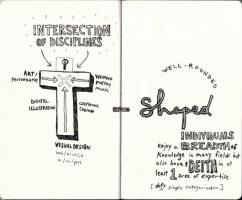 INTERSECTION
OF DISCIPLINES
ART/
PHOTOGRAPHY
WRITING
POETRY
MUSIC
DIGITAL
ILLUSTRATING
CREATIVE
VISUAL DESIGN
WELL-ROUNDED
Shaped
INDIVIDUALS
enjoy a BREADTH of
Knowledge in many fields but
also have DEPTH in at
least 1 area of expertise.
[defy single categorization]